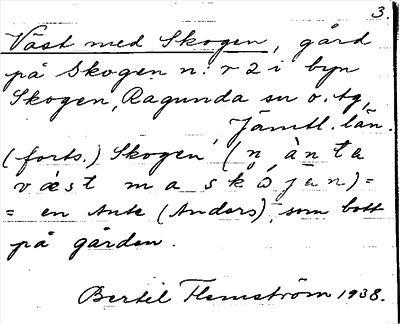 3.
Väst med Skogen, gård
på Skogen n:r 2 i byn
Skogen, Ragunda sn o. tg,
Jämtl. län.
(forts.) Skogen, (n ànta
væst ma skójan) =
= en Ante (Anders), som bott
på gården.
Bertil Flemström 1938.